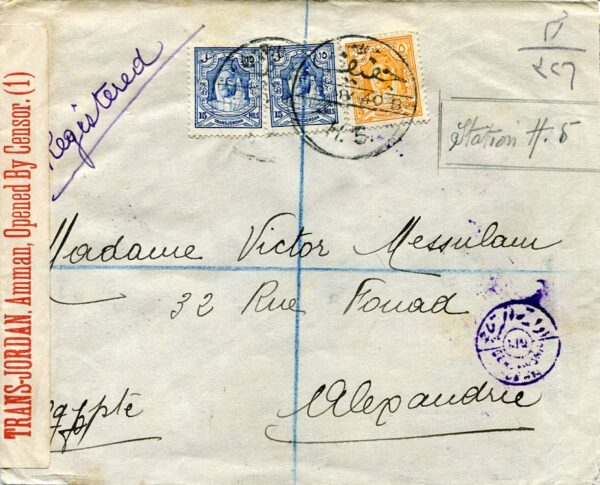 TRANS-JORDAN. Amman, Opened By Censor. (1)
Registered
15 TRANSJORDAN MILS
15 TRANSJORDAN MILS
TRANSJORDAN
40 B
H. 5.
٢٤٦
Station H. 5
Madame Victor Messulam
32 Rue Fouad
Egypte
Alexandrie